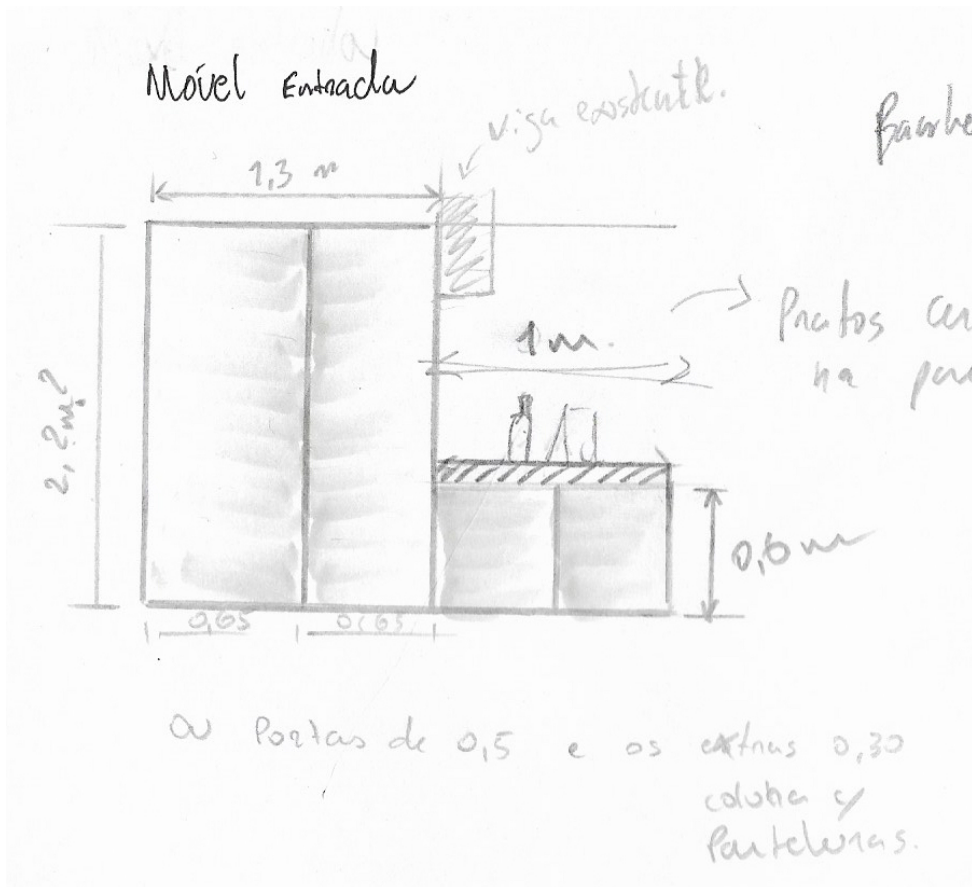 Móvel Entrada
viga existente.
1,3 m
Pratos
na
1 m.
2,2 m?
0,6 m
0,65 0,65
ou Portas de 0,5 e os extras 0,30
coluna c/
Parteleiras.